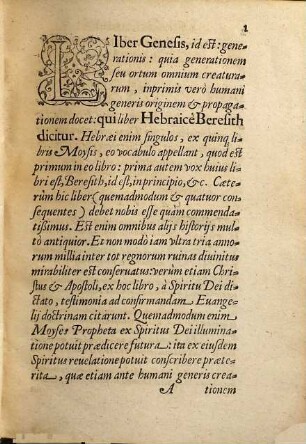 1
LIber Genesis, id est: gene-
rationis: quia generationem
seu ortum omnium creatura-
rum, inprimis verò humani
generis originem & propaga-
tionem docet: qui liber Hebraicè Beresith
dicitur. Hebræi enim singulos, ex quinq; li-
bris Moysis, eo vocabulo appellant, quod est
primum in eo libro: prima autem vox huius li-
bri est, Beresith, id est, in principio, &c. Cæte-
rùm hic liber (quemadmodum & quatuor con-
sequentes) debet nobis esse quàm commenda-
tißimus. Est enim omnibus alijs historijs mul-
tò antiquior. Et non modò iam vltra tria anno-
rum millia inter tot regnorum ruinas diuinitus
mirabiliter est conseruatus: verùm etiam Chri-
stus & Apostoli, ex hoc libro, à Spiritu Dei di-
ctato, testimonia ad confirmandam Euange-
lij doctrinam citarunt. Quemadmodum enim
Moyses Propheta ex Spiritus Dei illumina-
tione potuit prædicere futura: ita ex eiusdem
Spiritus reuelatione potuit conscribere præte-
rita, quæ etiam ante humani generis crea-
A tionem